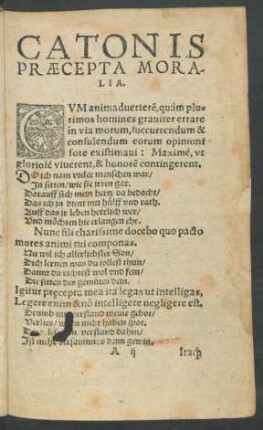 CATONIS
PRÆCEPTA MORA-
LIA.
CVM animaduerterẽ, quàm plu-
rimos homines grauiter errare
in via morum, succurrendum &
consulendum eorum opinioni
fore existimaui: Maximé, vt
gloriosè viuerent, & honorẽ contingerent.
DO ich nam vieler menschen war/
In sitten/ wie sie irren gar.
Darauff sich mein hertz da bedacht/
Das ich in dient mit hülff vnd rath.
Auff das sie leben herrlich wer/
Vnd möchten hie erlangen ehr.
Nunc fili charissime docebo quo pacto
mores animi tui componas.
Nu wil ich allerliebster Son/
Dich lernen was du sollest thun/
Damit du richtest wol vnd fein/
Die sitten des gemütes dein.
Igitur pręcepta mea ita legas vt intelligas,
Legere enim & nõ intelligere negligere est.
Drumb verstand meine gebot/
nicht haben spot.
verstand dahin/
Ist nicht gewin.
A ij Itaq;